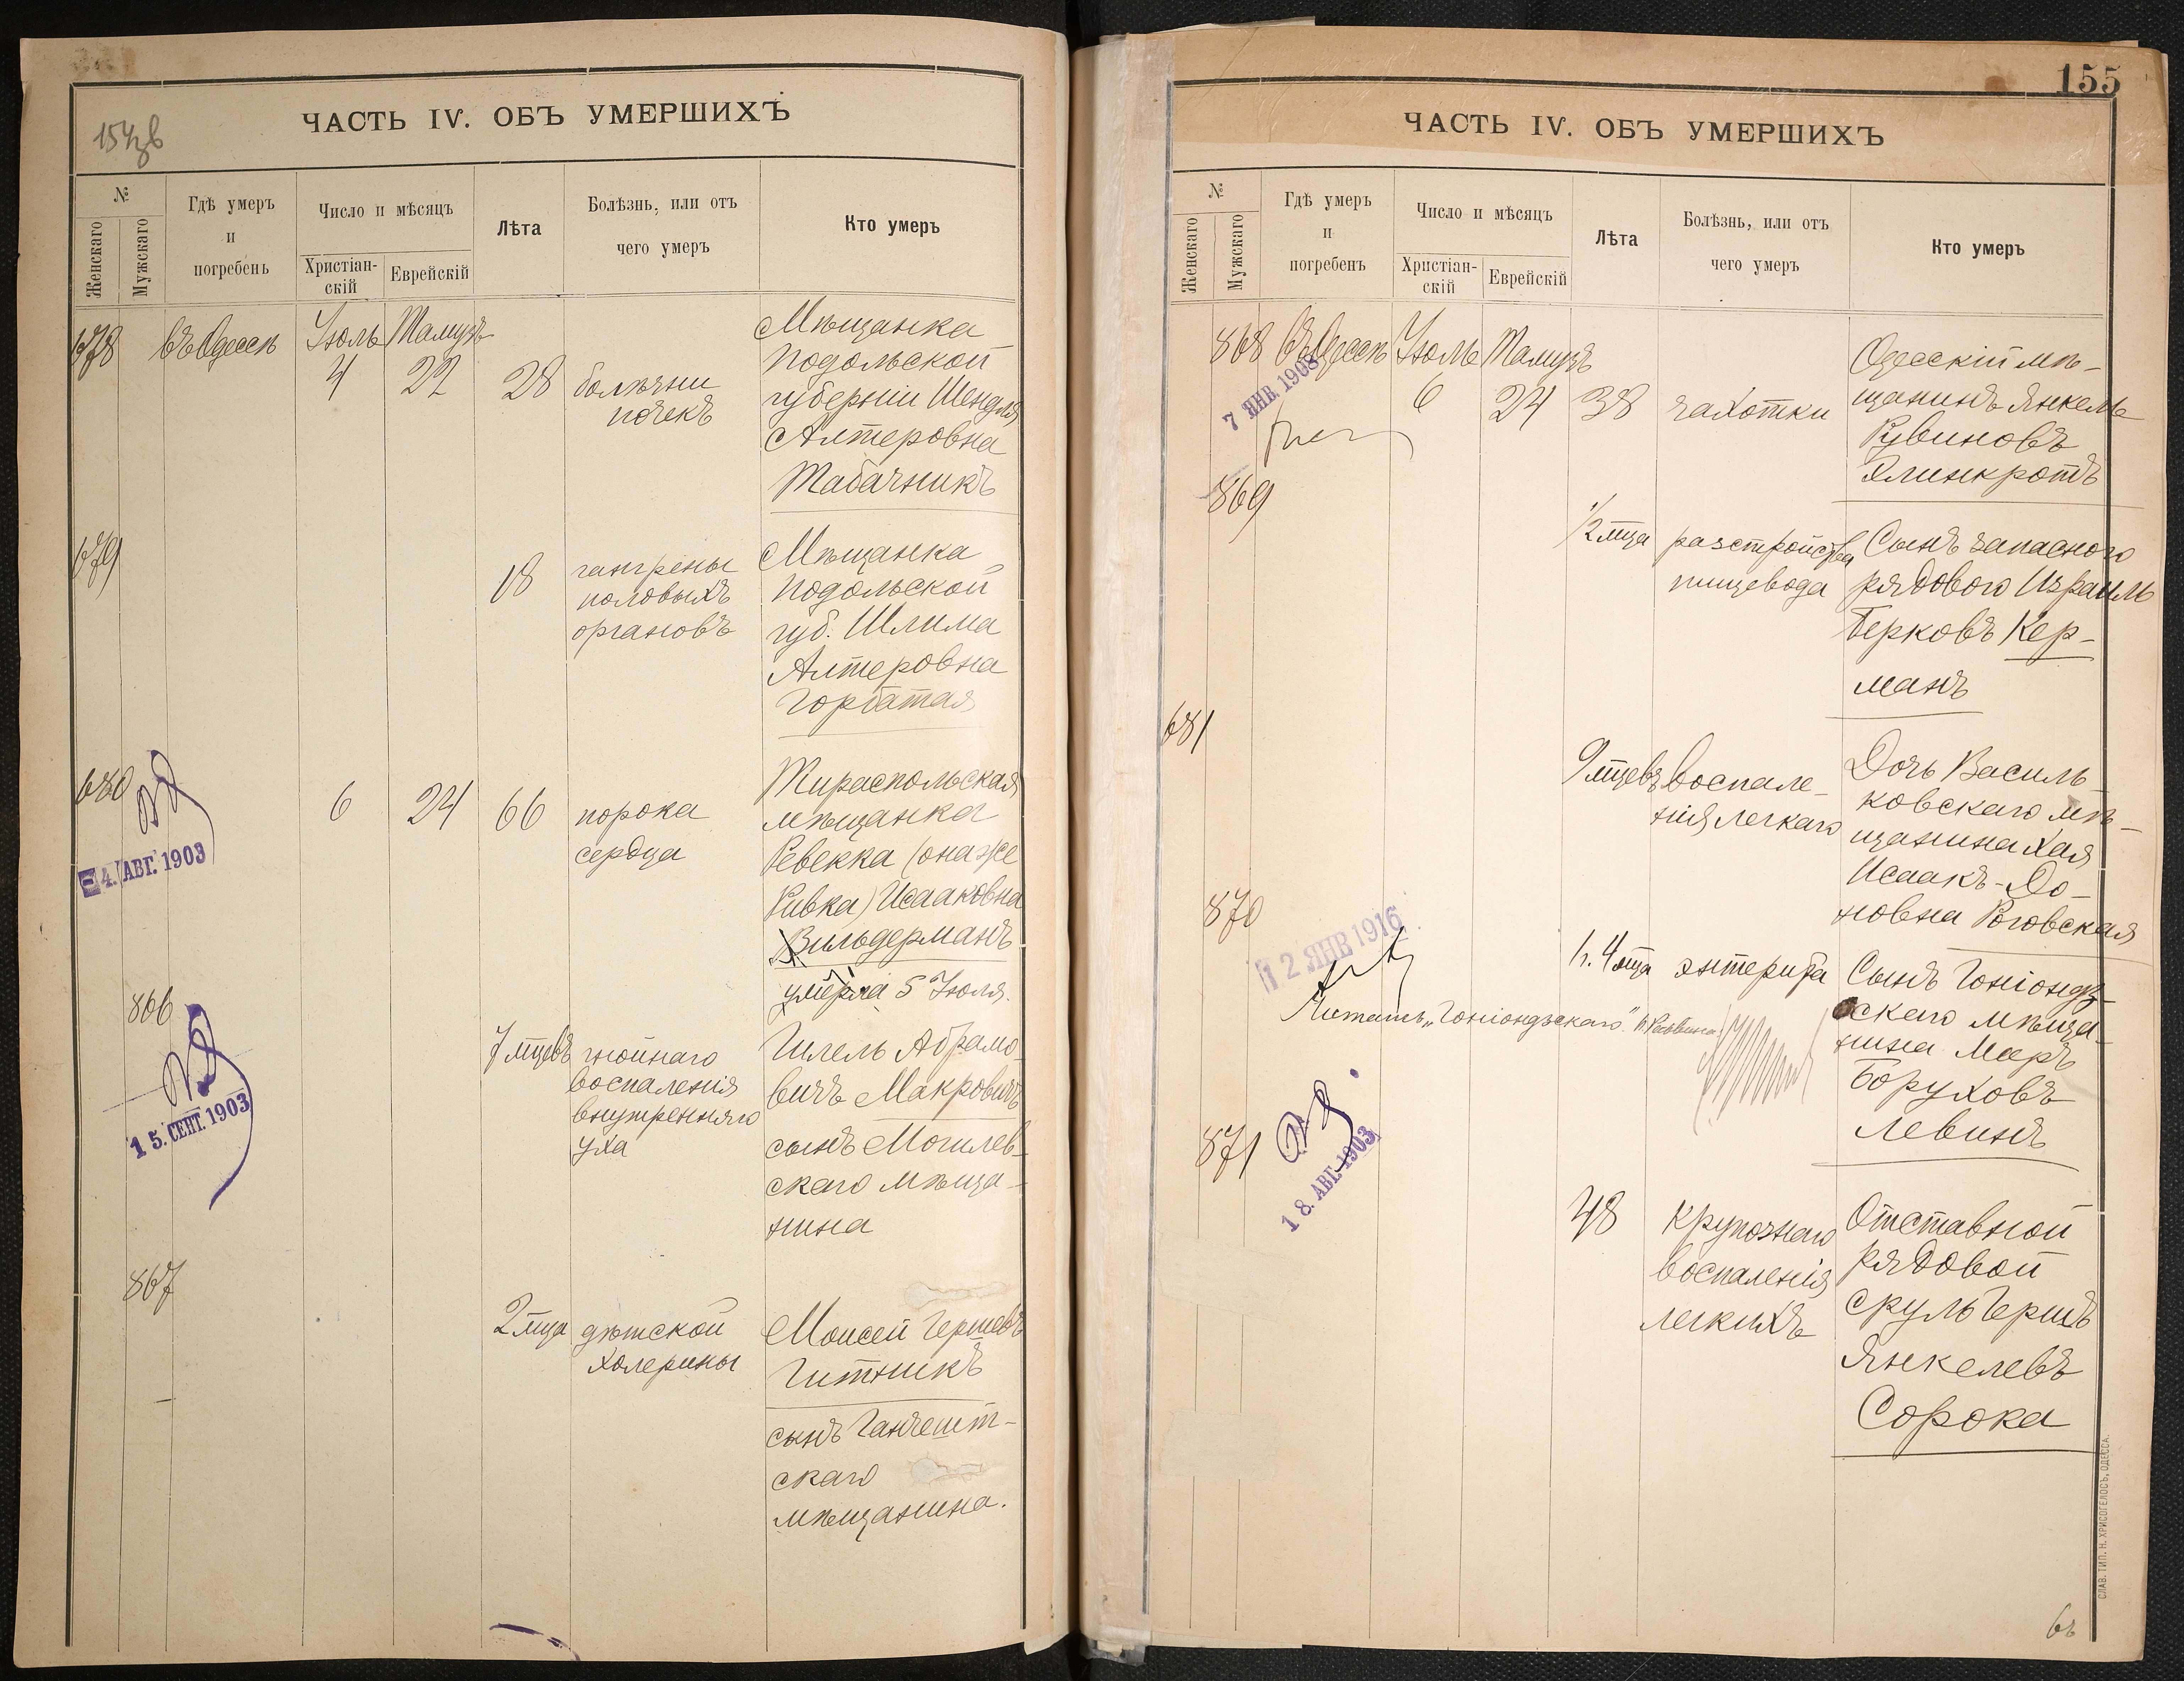 154 об
ЧАСТЬ IV. ОБЪ УМЕРШИХЪ
№
Женскаго
Мужскаго
Гдѣ умеръ
и
погребенъ
Число и мѣсяцъ
Христіан-
скій
Еврейскій
Лѣта
Болѣзнь, или отъ
чего умеръ
Кто умеръ
678 въ Одессѣ Іюль Тамузъ
4 22 28
болѣзни
почекъ
Мѣщанка
Подольской
губерніи Шендля
Алтеровна
Табачникъ
679
18
гангрены
половыхъ
органовъ
Мѣщанка
Подольской
губ. Шлима
Алтеровна
Горбатая
680
4. АВГ. 1903
6 24 66
порока
сердца
Тираспольская
мѣщанка
Ревекка (она же
Ривка) Исааковна
Вильдерманъ
умерла 5 Іюля.
866
15. СЕНТ. 1903
7 мцевъ
гнойнаго
воспаленія
внутренняго
уха
Гилель Абрамо-
вичъ Макровичъ
сынъ Могилев-
скаго мѣща-
нина
867
2 мца
дѣтской
холерины
Моисей Гершевъ
Гитникъ
сынъ Ганчешт-
скаго
мѣщанина.
155
ЧАСТЬ IV. ОБЪ УМЕРШИХЪ
№
Женскаго
Мужскаго
Гдѣ умеръ
и
погребенъ
Число и мѣсяцъ
Христіан-
скій
Еврейскій
Лѣта
Болѣзнь, или отъ
чего умеръ
Кто умеръ
868 въ Одессѣ Іюль Тамузъ
7 ЯНВ. 1908
6 24 38
чахотки
Одесскій мѣ-
щанинъ Янкель
Рувиновъ
Клинкротъ
869
1/2 мца
разстройства
пищевода
Сынъ запасного
рядового Израиль
Берковъ Кер-
манъ
681
9 мцевъ
воспале-
нія легкаго
Дочь Василь-
ковскаго мѣ-
щанина Хая
Исаакъ-До-
новна Роговская
870
12 ЯНВ 1916
1 г. 4 мца
энтерита
Сынъ Гоніондз-
скаго мѣща-
нина Меръ
Боруховъ
Левинъ
Читать „Гоніондзскаго"
871
18. АВГ. 1903
48
крупознаго
воспаленія
легкихъ
Отставной
рядовой
Сруль Гершъ
Янкелевъ
Сорока
СЛАВ. ТИП. Н. ХРИСОГЕЛОСЪ, ОДЕССА.